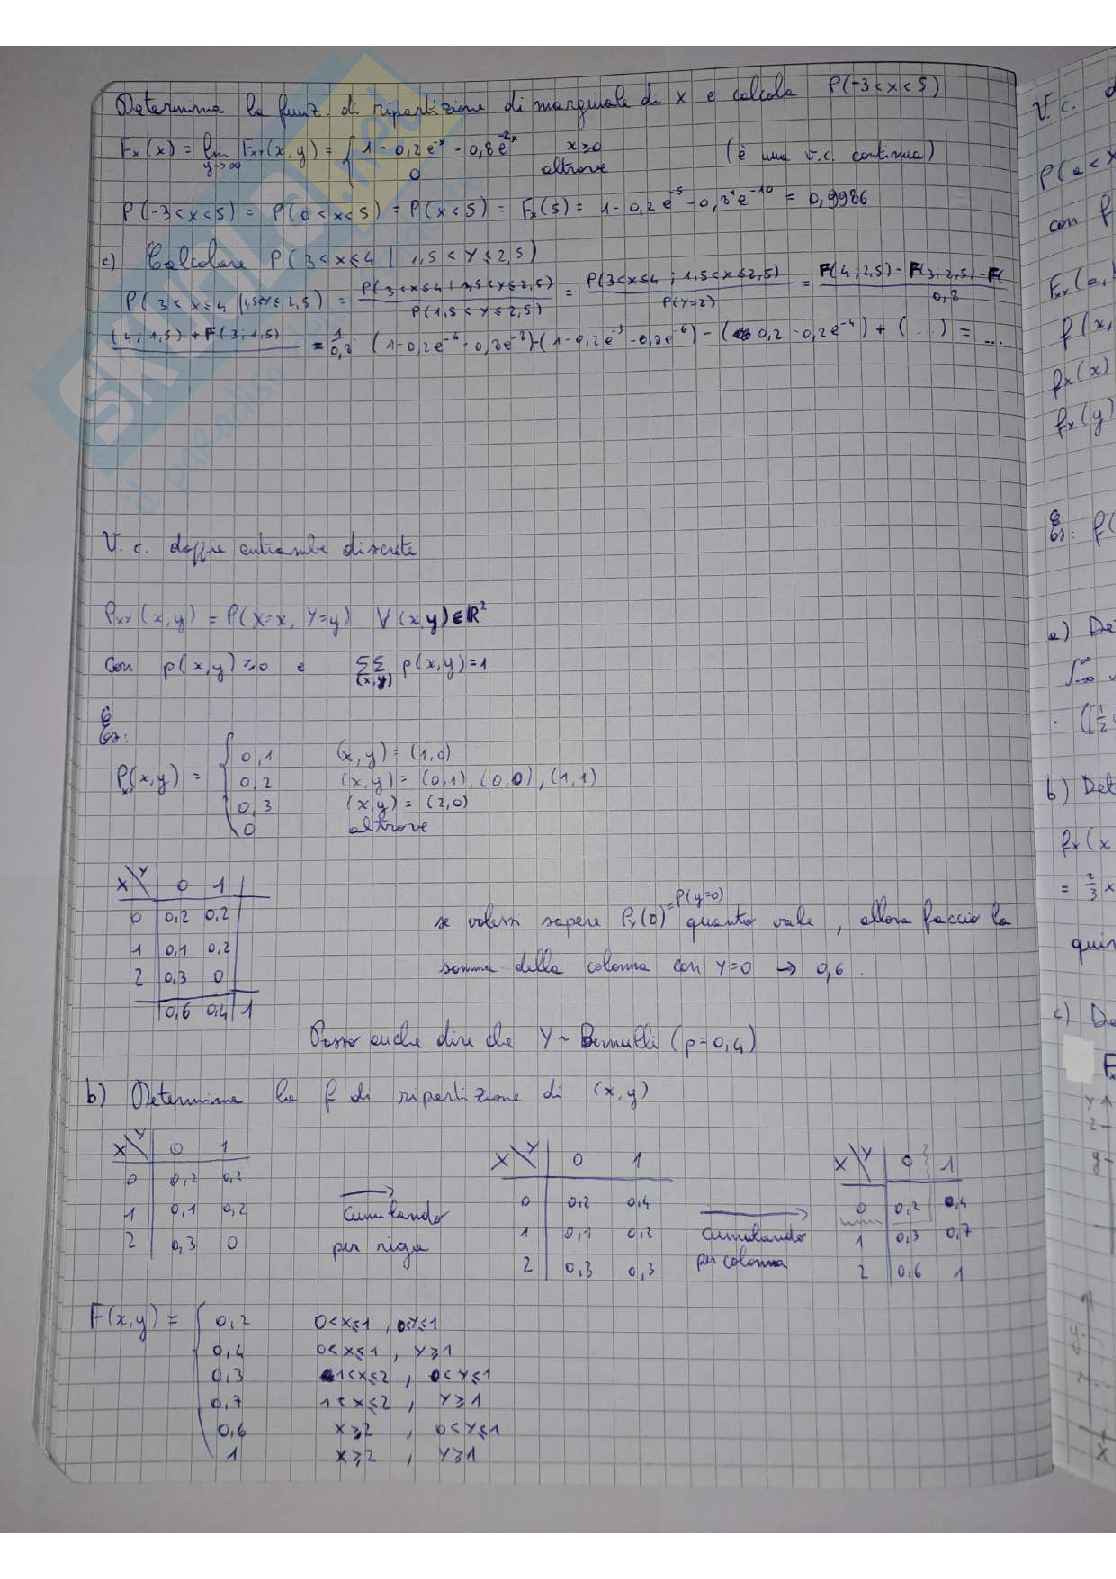 Determina la funz. di ripartizione di marginale di x e calcola P(-3<x<5)
Fx(x) = lim y→∞ Fxy(x,y) = { 1-0,2e^-x - 0,8e^-2x x≥0 (è una v.c. continua)
0 altrove
P(-3<x<5) = P(0<x<5) = P(x<5) = Fx(5) = 1-0,2e^-5 - 0,8e^-10 = 0,9986
c) Calcolare P(3<x≤4 | 1,5<Y≤2,5)
P(3<x≤4 | 1,5<Y≤2,5) = P(3<x≤4 ; 1,5<x≤2,5) / P(1,5<Y≤2,5) = P(3<x≤4 ; 1,5<x≤2,5) / P(Y=2) = F(4;2,5) - F(3,2,5) - F(
(4;1,5) + F(3;1,5) / 0,8 = 1/0,8 (1-0,2e^-4 - 0,8e^-8) - (1-0,2e^-3 - 0,8e^-6) - (0,2 - 0,2e^-4) + (..) = ...
V. c. doppie entrambe discrete
Pxy(x,y) = P(X=x, Y=y) ∀(x,y)∈R²
Con p(x,y)≥0 e ΣΣ(x,y) p(x,y)=1
Es:
P(x,y) = { 0,1 (x,y) = (1,0)
0,2 (x,y) = (0,1) (0,0), (1,1)
0,3 (x,y) = (2,0)
0 altrove
X\Y 0 1
0 0,2 0,2
1 0,1 0,2
2 0,3 0
0,6 0,4 1
se volessi sapere Py(0) =P(y=0) quanto vale, allora faccio la
somma della colonna con Y=0 → 0,6.
Posso anche dire che Y ~ Bernulli (p=0,4)
b) Determina la f di ripartizione di (x,y)
X\Y 0 1
0 0,2 0,2
1 0,1 0,2
2 0,3 0
cumulando
per riga
X\Y 0 1
0 0,2 0,4
1 0,1 0,2
2 0,3 0,3
cumulando
per colonna
X\Y 0 1
0 0,2 0,4
1 0,3 0,7
2 0,6 1
F(x,y) = { 0,2 0<x≤1, 0<Y≤1
0,4 0<x≤1, Y≥1
0,3 1<x≤2, 0<Y≤1
0,7 1<x≤2, Y≥1
0,6 x≥2, 0<Y≤1
1 x≥2, Y≥1
V. c.
P(a<x
con f
Fxy(a,
f(x,
fx(x)
fx(y)
Es: f(
a) Det
b) Det
fx(x
= 2/3 x
quin
c) De